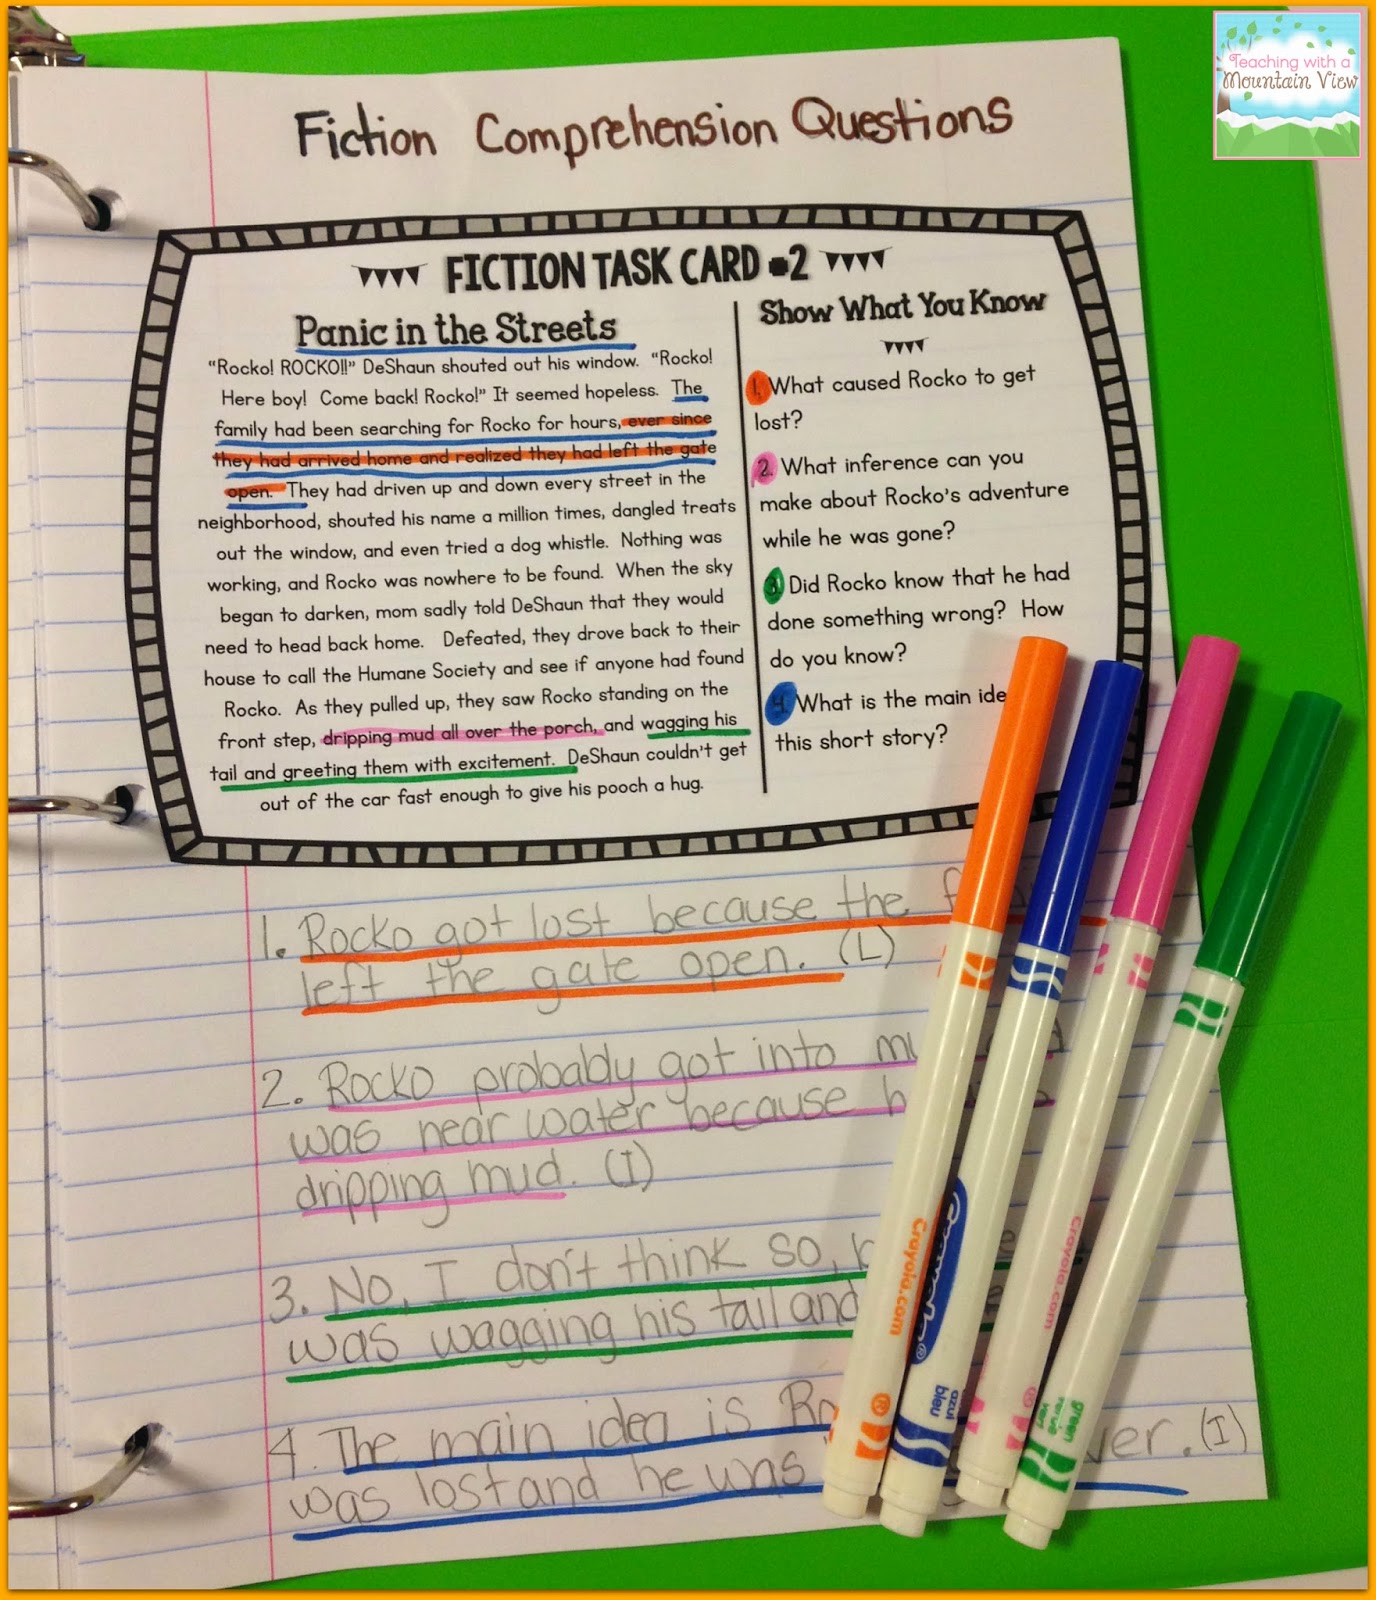 Teaching with a
Mountain View
Fiction Comprehension Questions
FICTION TASK CARD #2
Panic in the Streets
"Rocko! ROCKO!!" DeShaun shouted out his window. "Rocko!
Here boy! Come back! Rocko!" It seemed hopeless. The
family had been searching for Rocko for hours, ever since
they had arrived home and realized they had left the gate
open. They had driven up and down every street in the
neighborhood, shouted his name a million times, dangled treats
out the window, and even tried a dog whistle. Nothing was
working, and Rocko was nowhere to be found. When the sky
began to darken, mom sadly told DeShaun that they would
need to head back home. Defeated, they drove back to their
house to call the Humane Society and see if anyone had found
Rocko. As they pulled up, they saw Rocko standing on the
front step, dripping mud all over the porch, and wagging his
tail and greeting them with excitement. DeShaun couldn't get
out of the car fast enough to give his pooch a hug.
Show What You Know
1. What caused Rocko to get
lost?
2. What inference can you
make about Rocko's adventure
while he was gone?
3. Did Rocko know that he had
done something wrong? How
do you know?
4. What is the main ide
this short story?
1. Rocko got lost because the
left the gate open. (L)
2. Rocko probably got into
was near water because
dripping mud. (I)
3. No, I don't think so,
was wagging his tail and
4. The main idea is
was lost and he was (I)
Crayola.com
Crayola
azul
bleu
Crayola.com
green
verde
vert